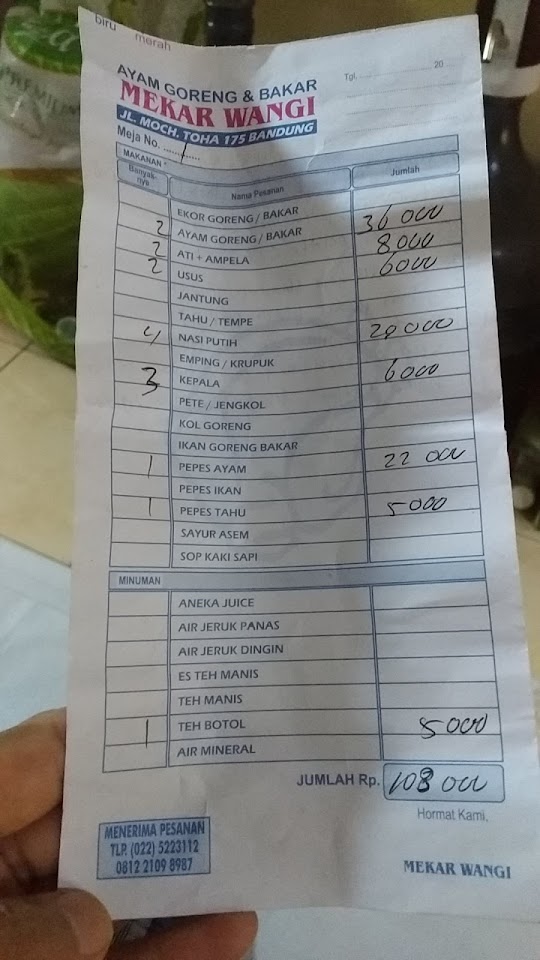 biru merah
AYAM GORENG & BAKAR
MEKAR WANGI
JL. MOCH. TOHA 175 BANDUNG
Tgl. 20
Meja No. 1
MAKANAN
Banyak-nya Nama Pesanan Jumlah
EKOR GORENG / BAKAR
2 AYAM GORENG / BAKAR 36 000
2 ATI + AMPELA 8000
2 USUS 6000
JANTUNG
TAHU / TEMPE
4 NASI PUTIH 20 000
EMPING / KRUPUK
3 KEPALA 6000
PETE / JENGKOL
KOL GORENG
IKAN GORENG BAKAR
1 PEPES AYAM 22 000
PEPES IKAN
1 PEPES TAHU 5000
SAYUR ASEM
SOP KAKI SAPI
MINUMAN
ANEKA JUICE
AIR JERUK PANAS
AIR JERUK DINGIN
ES TEH MANIS
TEH MANIS
1 TEH BOTOL 5000
AIR MINERAL
JUMLAH Rp. 108 000
Hormat Kami,
MENERIMA PESANAN
TLP. (022) 5223112
0812 2109 8987
MEKAR WANGI